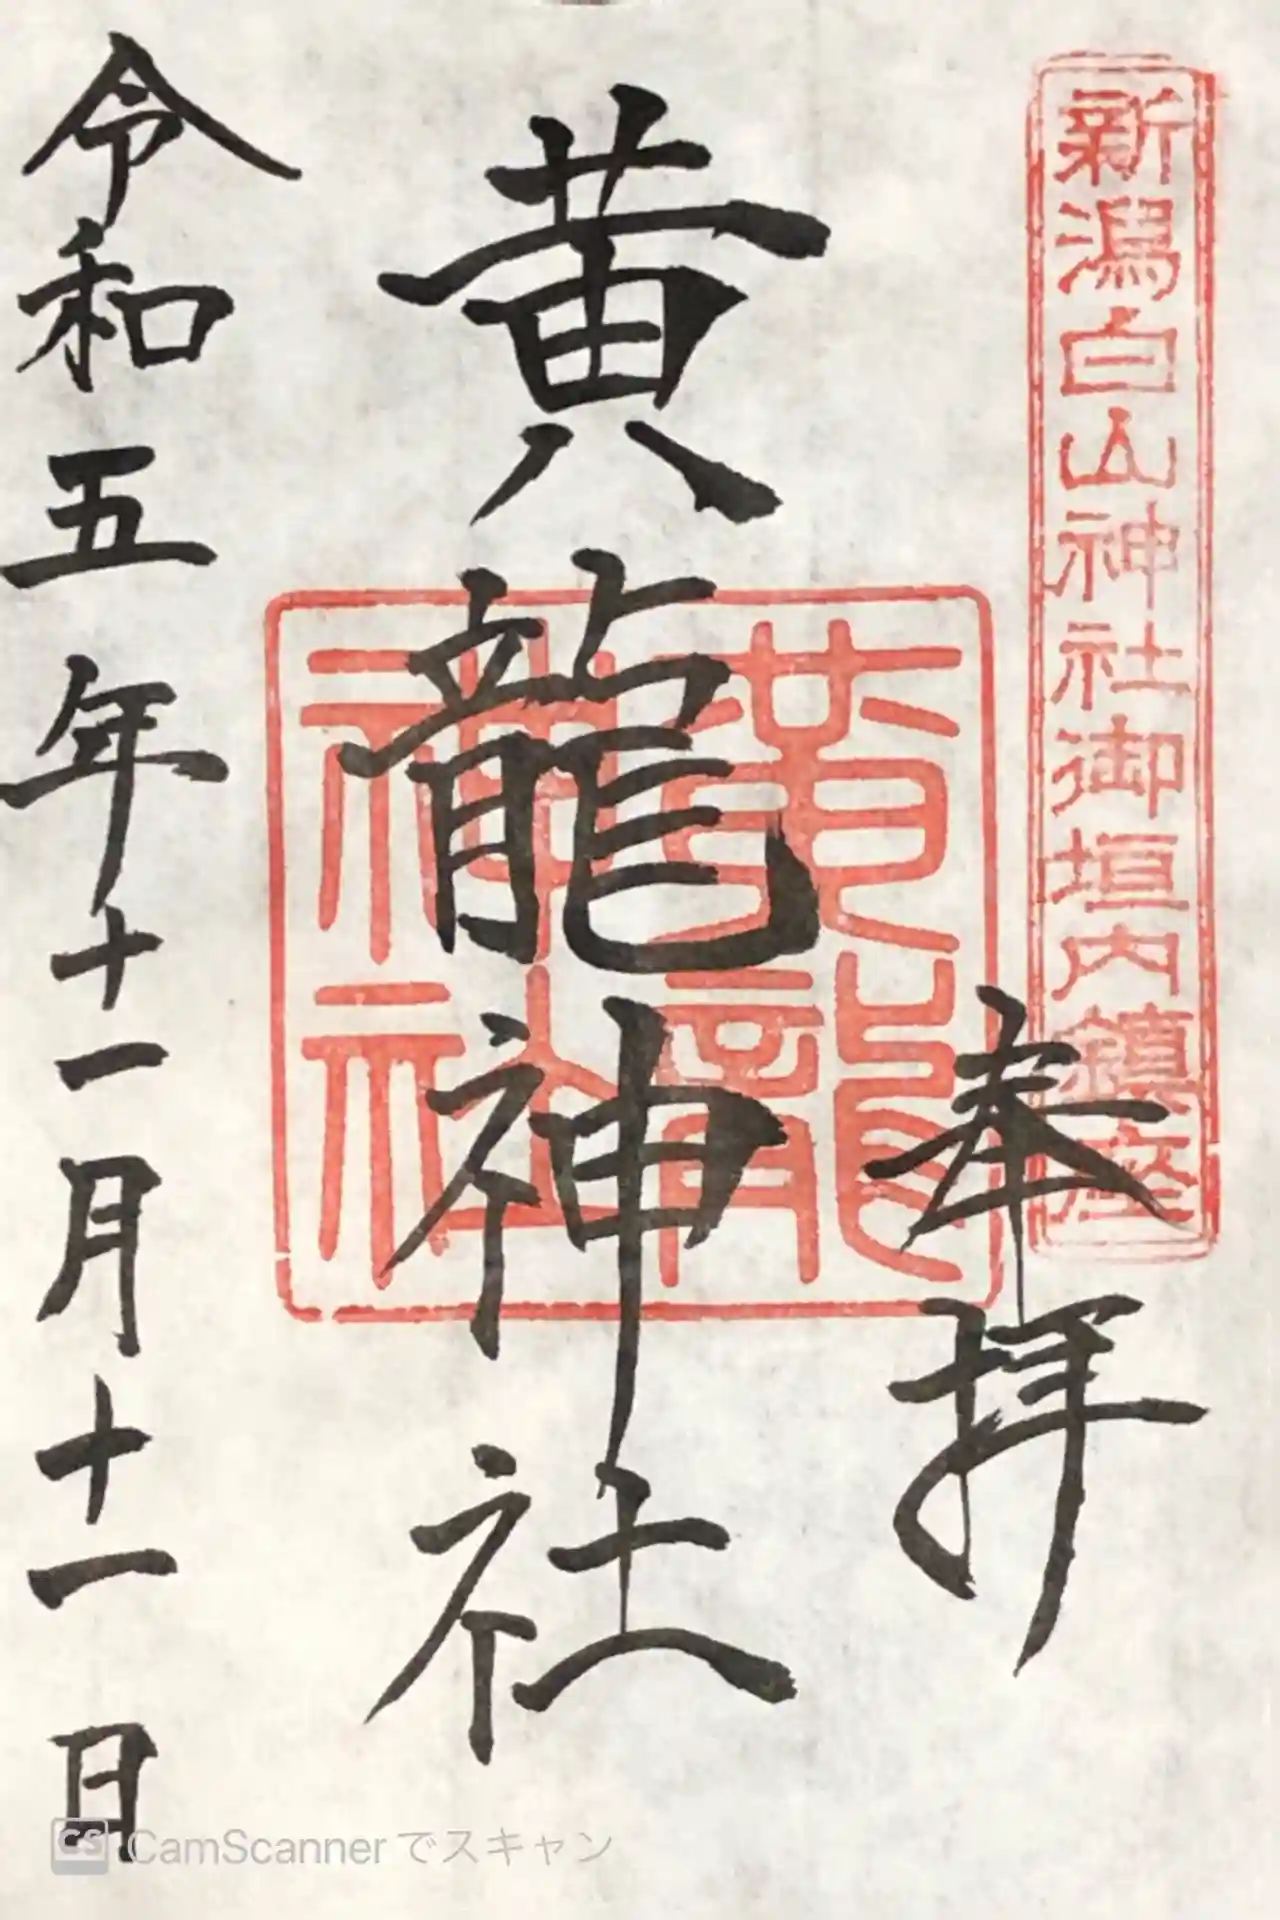 新潟白山神社御垣内鎮座
奉拝
黄龍神社
黄龍神社
令和五年十一月十一日
CS CamScannerでスキャン